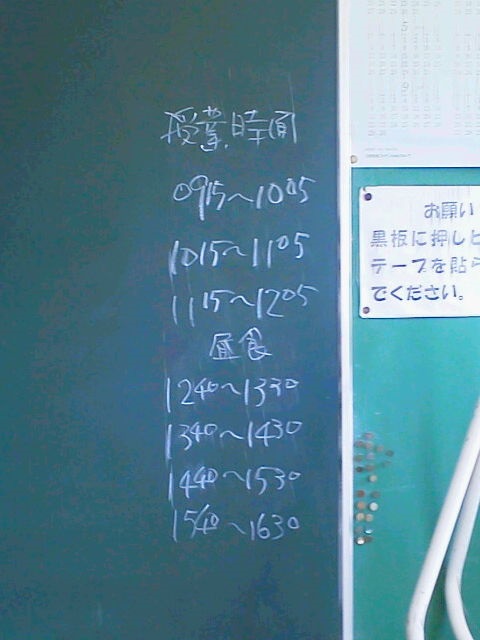 授業時間
0915～1005
1015～1105
1115～1205
昼食
1240～1330
1340～1430
1440～1530
1540～1630
お願い
黒板に押しピ
テープを貼ら
でください。